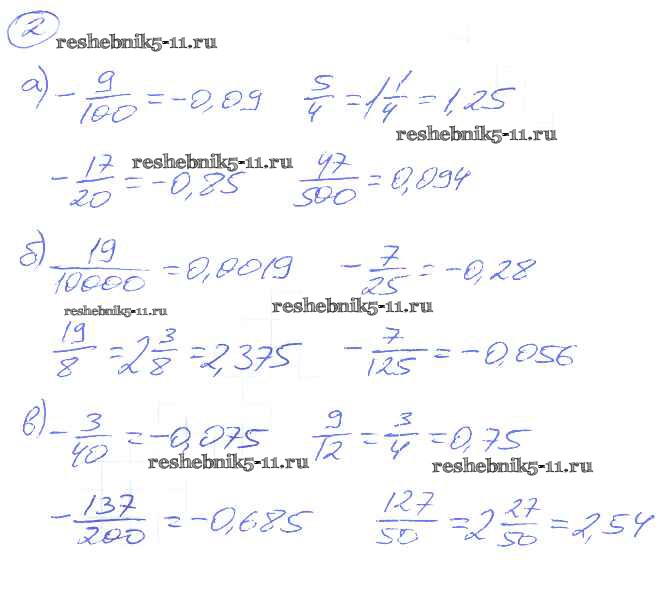 2
reshebnik5-11.ru
а) -9/100 = -0,09 5/4 = 1 1/4 = 1,25
reshebnik5-11.ru
reshebnik5-11.ru
-17/20 = -0,85 47/500 = 0,094
б) 19/10000 = 0,0019 -7/25 = -0,28
reshebnik5-11.ru reshebnik5-11.ru
19/8 = 2 3/8 = 2,375 -7/125 = -0,056
в) -3/40 = -0,075 9/12 = 3/4 = 0,75
reshebnik5-11.ru reshebnik5-11.ru
-137/200 = -0,685 127/50 = 2 27/50 = 2,54